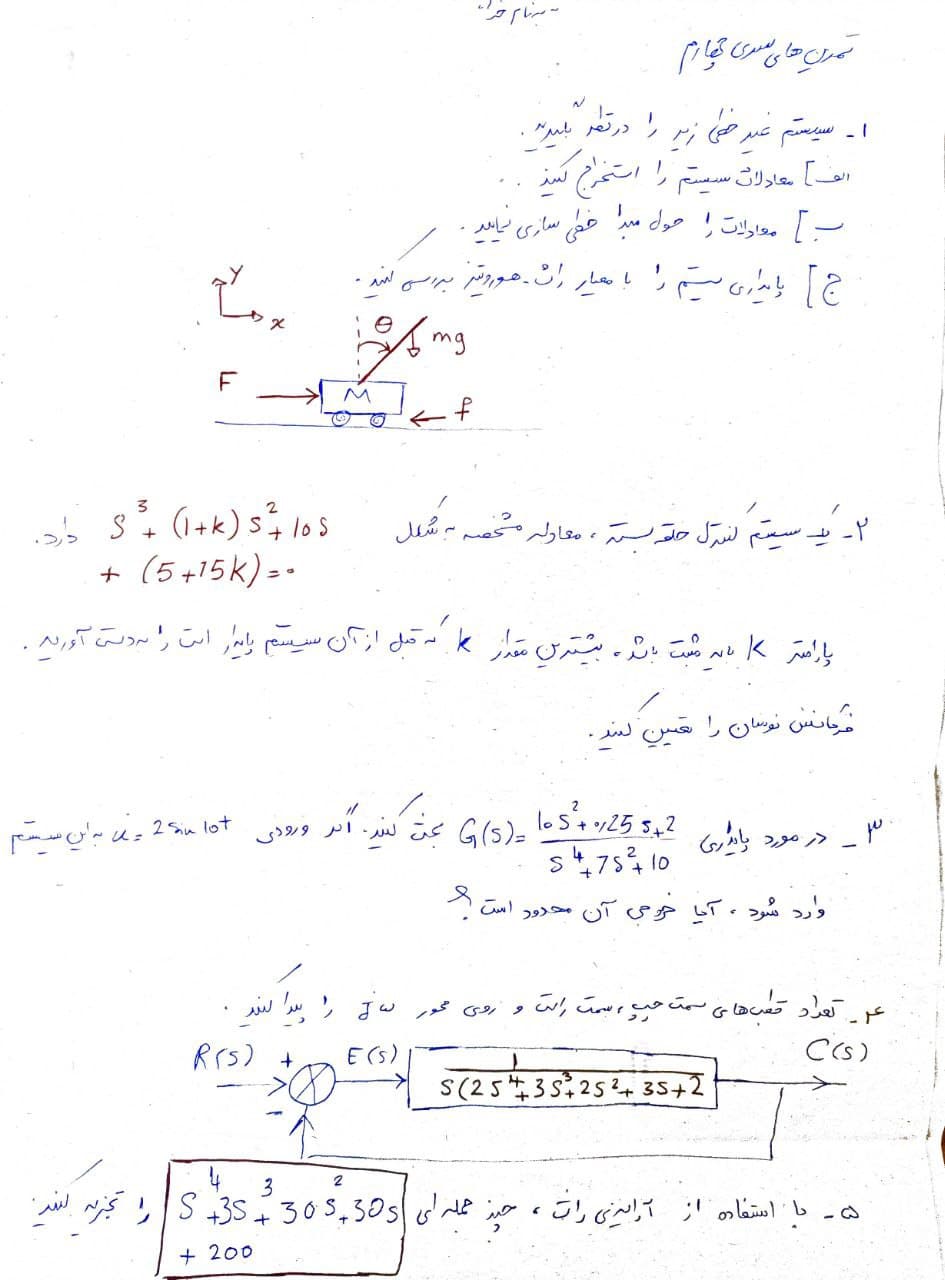 به نام خدا
تمرین های سری چهارم
۱- سیستم غیر خطی زیر را در نظر بگیرید.
الف] معادلات سیستم را استخراج کنید.
ب] معادلات را حول مبدا خطی سازی نمایید.
ج] پایداری سیستم را با معیار راث-هورویتز بررسی کنید.
Y
x
θ
mg
F
M
f
۲- یک سیستم کنترل حلقه بسته، معادله مشخصه به شکل S³ + (1+k)S² + 10S دارد.
+ (5+15k) = 0
پارامتر k باید مثبت باشد، بیشترین مقدار k که قبل از آن سیستم پایدار است را به دست آورید.
فرکانس نوسان را تعیین کنید.
۳- در مورد پایداری G(s) = (10S² + 0,25S + 2) / (S⁴ + 7S² + 10) بحث کنید. اگر ورودی u = 2 sin 10t به این سیستم
وارد شود، آیا خروجی آن محدود است؟
۴- تعداد قطب های سمت چپ، سمت راست و روی محور jω را پیدا کنید.
R(s) + E(s) C(s)
1
S(2S⁴+3S³+2S²+3S+2
-
۵- با استفاده از آرایه ی راث، چند جمله ای S⁴+3S³+30S²+30S را تجزیه کنید
+ 200